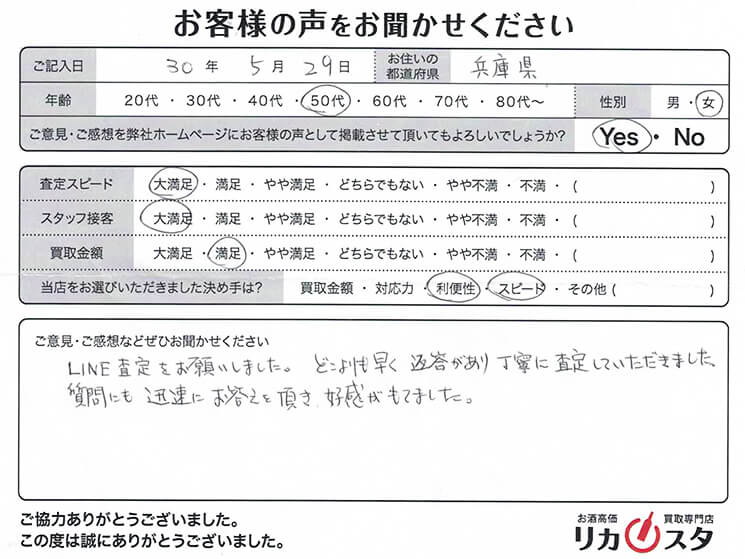 お客様の声をお聞かせください
ご記入日 30年 5月 29日 お住いの都道府県 兵庫県
年齢 20代・30代・40代・50代・60代・70代・80代〜 性別 男・女
ご意見・ご感想を弊社ホームページにお客様の声として掲載させて頂いてもよろしいでしょうか? Yes・No
査定スピード 大満足・満足・やや満足・どちらでもない・やや不満・不満・( )
スタッフ接客 大満足・満足・やや満足・どちらでもない・やや不満・不満・( )
買取金額 大満足・満足・やや満足・どちらでもない・やや不満・不満・( )
当店をお選びいただきました決め手は? 買取金額・対応力・利便性・スピード・その他( )
ご意見・ご感想などぜひお聞かせください
LINE査定をお願いしました。どこよりも早く返答があり丁寧に査定していただきました
質問にも迅速にお答えを頂き、好感がもてました。
ご協力ありがとうございました。
この度は誠にありがとうございました。
お酒高価 買取専門店
リカスタ